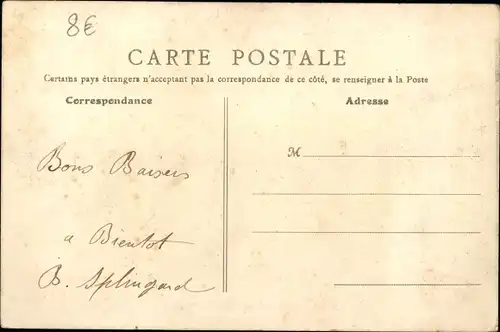 8€
CARTE POSTALE
Certains pays étrangers n'acceptant pas la correspondance de ce côté, se renseigner à la Poste
Correspondance
Adresse
M
Bons Baisers
a Bientot
B. Splingard